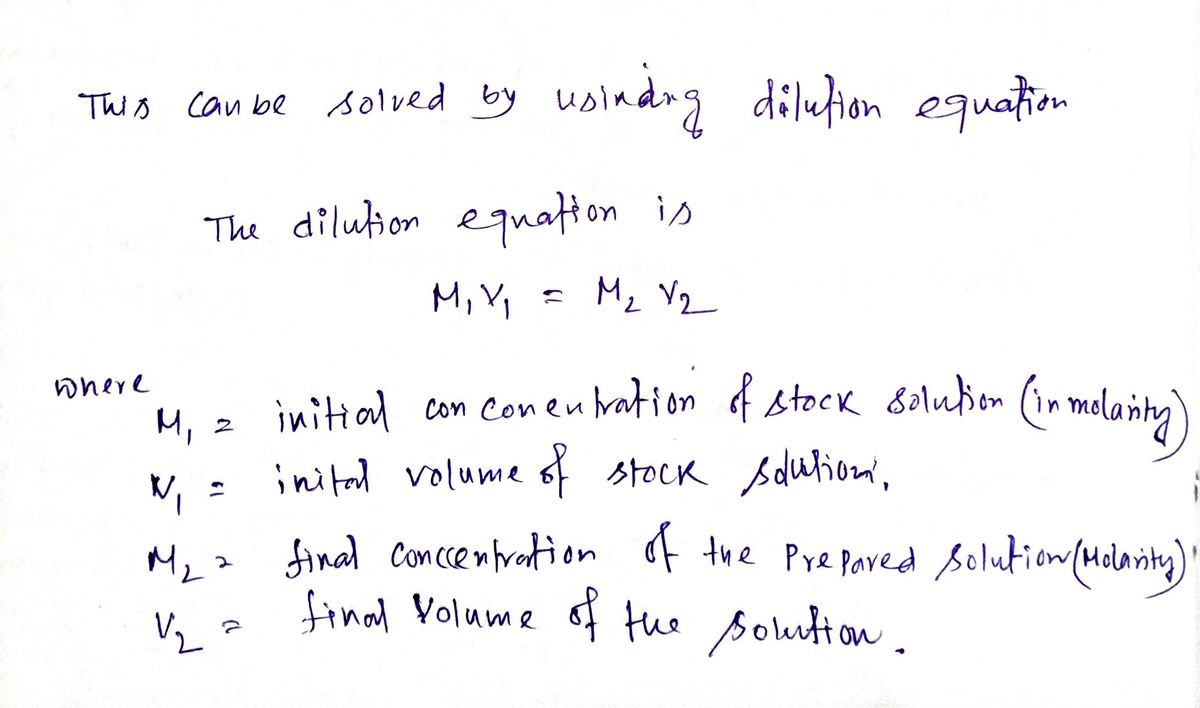 This can be solved by usindng dilution equation
The dilution equation is
M₁V₁ = M₂ V₂
where
M₁ = initial con conentration of stock solution (in molarity)
V₁ = inital volume of stock solution,
M₂ = final conccentration of the Prepared solution (Molarity)
V₂ = final Volume of the solution.